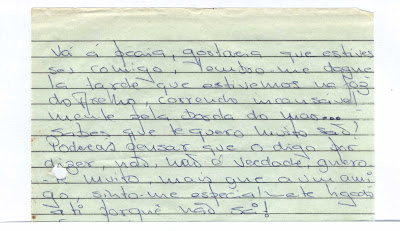 Vá á praia, gostaria que estives
ses comigo, lembro-me daque
la tarde que estivemos na Foz
do Arelho correndo incansavel
mente pela borda do mar...
Sabes que te quero muito não?
Poderas pensar que o digo por
dizer, não, não é verdade, quero
-te muito, mais que a um ami
go, sinto-me especial-ete ligado
a ti porquê não sei!